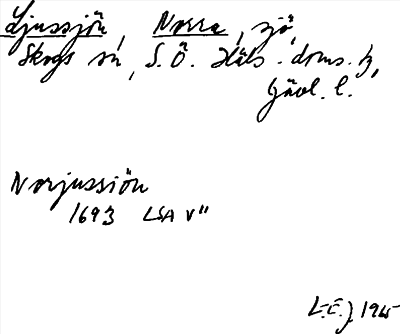 Ljussjön, Norra, sjö,
Skogs sn, S. Ö. Häls. doms. h,
Gävl. l.
Norjussiön
1693 LSA V"
L.E.J. 1945